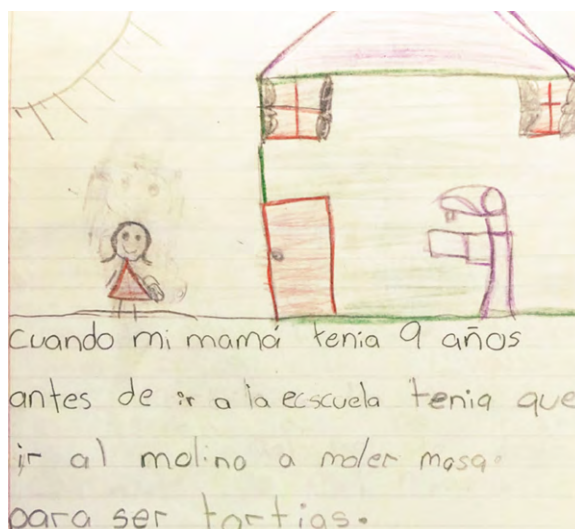 cuando mi mamá tenia 9 años
antes de ir a la ecscuela tenia que
ir al molino a moler masa
para ser tortias.